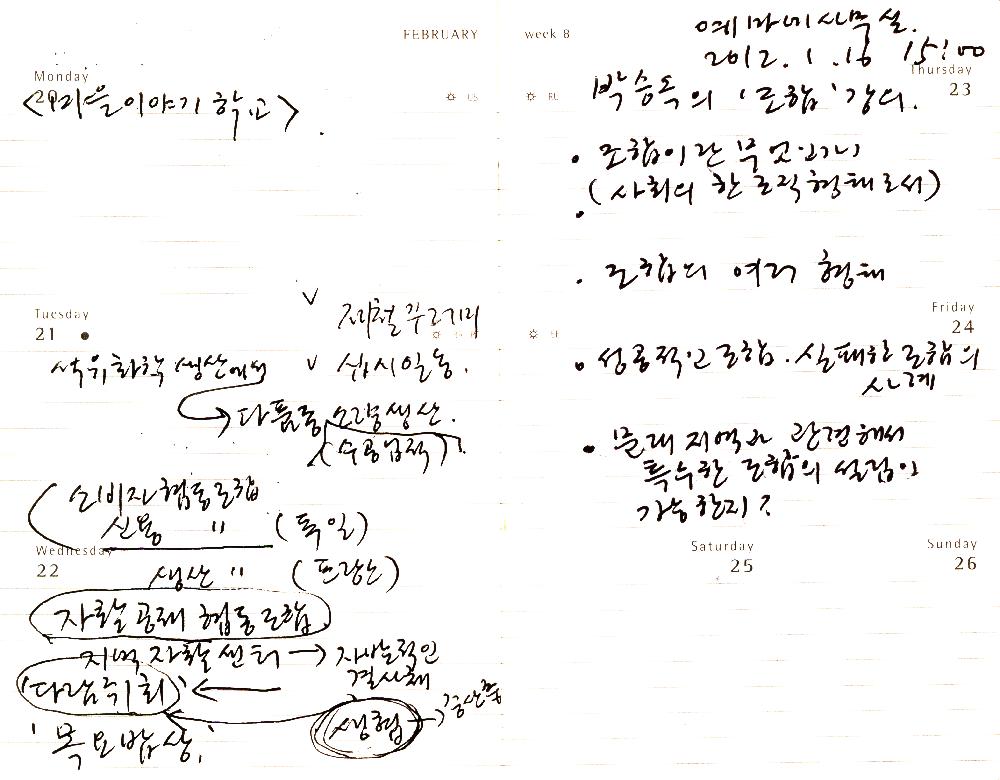 FEBRUARY
week 8
Monday
20
<마을이야기 학교>
Tuesday
21
v 제철꾸러미
v 십시일동.
석유화학 생산에서
→ 다품종 소량생산.
(수공업적)
소비자협동조합
신용 〃 (독일)
Wednesday
22
생산 〃 (프랑스)
자활공제 협동조합
지역 자활센터 → 자발적인
결사체
'다람쥐회' ←
생협 →
'목요밥상'
예마네사무실.
2012. 1. 16 15:00
Thursday
23
박승옥의 '조합' 강의.
• 조합이란 무엇인가
(사회의 한 조직형태로서)
•
• 조합의 여러 형태
Friday
24
• 성공적인 조합. 실패한 조합의
사례
• 문래 지역과 관련해서
특수한 조합의 설립이
가능한지?
Saturday
25
Sunday
26